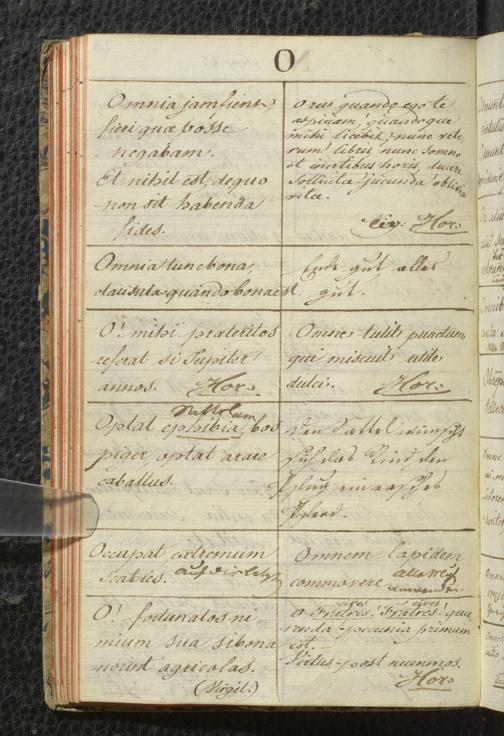 O
Omnia jam fient,
fieri quæ posse
negabam.
Et nihil est, de quo
non sit habenda
fides.
O rus quando ego te
aspiciam, quandoque
mihi licebit, nunc vete
rum libris, nunc somno
et inertibus horis, ducere
sollicita jucunda oblivia
vitæ.
Hor:
Omnia tunc bona,
clausula quando bona est.
Ende gut, alles
gut.
O! mihi præteritos
referat si Jupiter
annos. Hor:
Omne tulit punctum
qui miscuit utile
dulci. Hor:
Optat ephibia, bos
piger, optat arare
caballus.
Den Sattel wünscht
sich das Rind den
Pflug ein rasches
Pferd.
Occupat extremum
Scabies.
Omnem lapidem
commovere
O! fortunatos ni-
mium sua si bona
norint agricolas.
(Virgil.)
cives! cives!
O Fratres! Fratres! quæ
renda pecunia primum
est.
Virtus post nummos.
Hor: